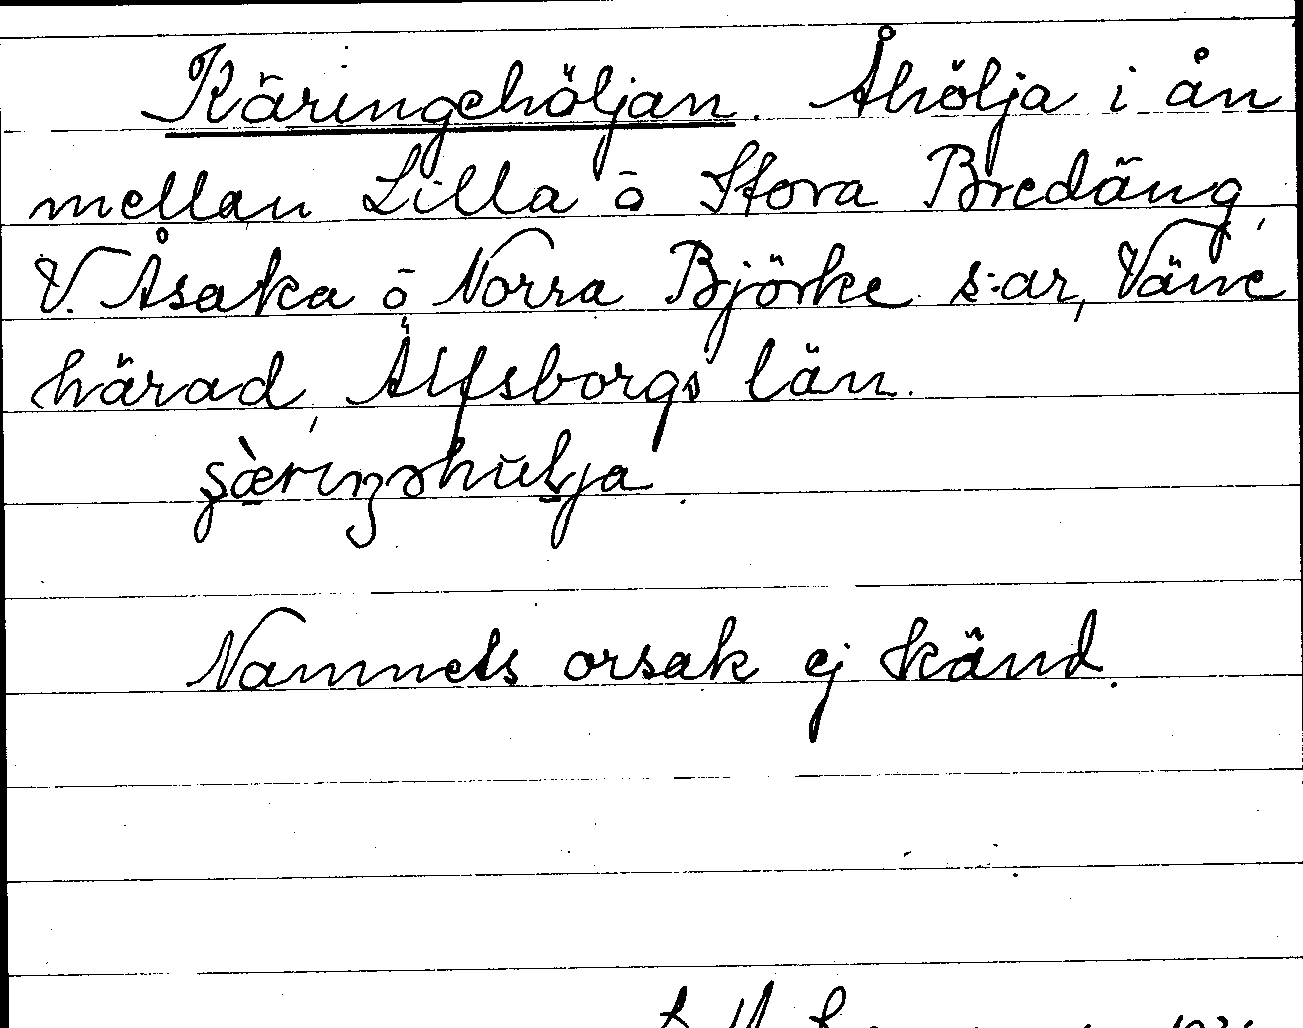 Käringehöljan. Åhölja i ån
mellan Lilla ō Stora Bredäng,
V. Åsaka ō Norra Björke s:ar, Väne
härad, Älfsborgs län.
Nammets orsak ej känd.